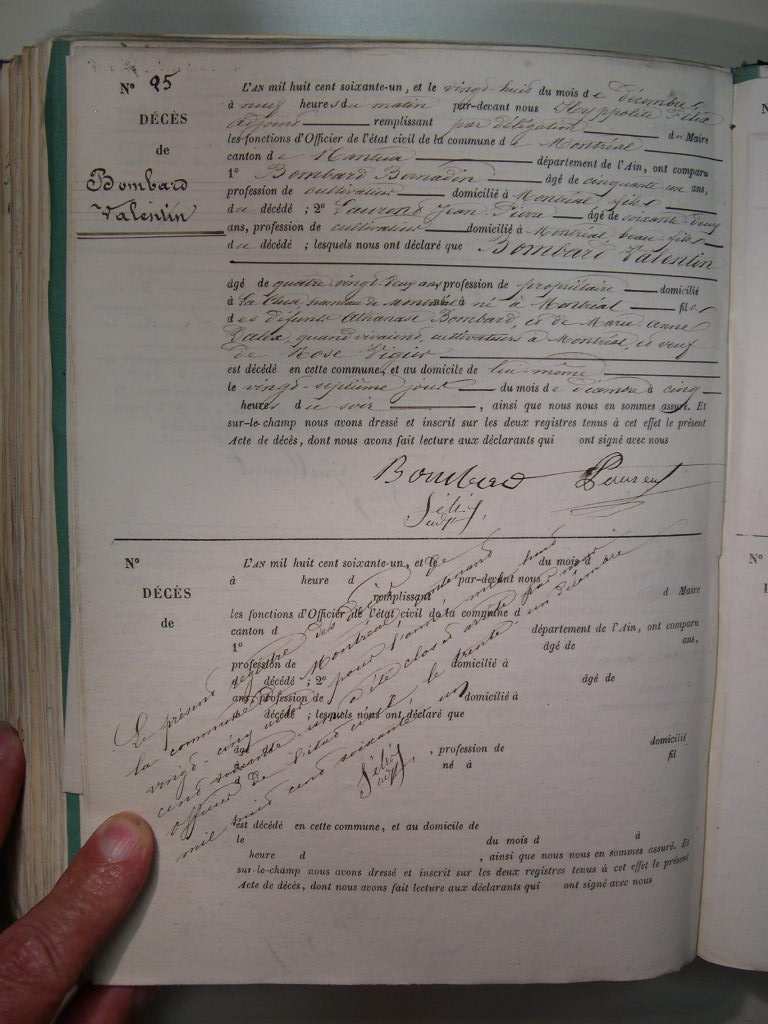 N° 25
DÉCÈS
de
Bombard
Valentin
L'AN mil huit cent soixante-un, et le vingt huit du mois de décembre,
à neuf heures du matin par-devant nous Hyppolite Félix
adjoint remplissant par délégation de Maire
les fonctions d'Officier de l'état civil de la commune de Montréal
canton de Nantua département de l'Ain, ont comparu
1° Bombard Bernadin âgé de cinquante un ans,
profession de cultivateur domicilié à Montréal, fils
du décédé ; 2° Laurent Jean Pierre âgé de soixante
ans, profession de cultivateur domicilié à Montréal, beau fils
du décédé ; lesquels nous ont déclaré que Bombard Valentin
âgé de quatre vingt deux ans, profession de propriétaire domicilié
à hameau de Montréal né à Montréal fils
des défunts Athanase Bombard, et de Marie anne
quand vivaient, cultivateurs à Montréal, et veuf
de Rose Vigier
est décédé en cette commune, et au domicile de lui-même
le vingt-septième jour du mois de décembre à cinq
heures du soir , ainsi que nous nous en sommes assuré. Et
sur-le-champ nous avons dressé et inscrit sur les deux registres tenus à cet effet le présent
Acte de décès, dont nous avons fait lecture aux déclarants qui ont signé avec nous
Bombard Laurent
Félix
adjt.
N°
DÉCÈS
de
L'AN mil huit cent soixante-un, et le du mois d
à heure d par-devant nous
remplissant d Maire
les fonctions d'Officier de l'état civil de la commune d
canton d département de l'Ain, ont comparu
1° âgé de ans,
profession de domicilié à
d décédé ; 2° âgé de
ans, profession de domicilié à
d décédé ; lesquels nous ont déclaré que
âgé d , profession de domicilié
à né à fil
d
est décédé en cette commune, et au domicile de
le du mois d à
heure d , ainsi que nous nous en sommes assuré. Et
sur-le-champ nous avons dressé et inscrit sur les deux registres tenus à cet effet le présent
Acte de décès, dont nous avons fait lecture aux déclarants qui ont signé avec nous
Le présent registre des décès de
la commune de Montréal, contenant
vingt-cinq actes pour l'année mil huit
cent soixante-un a été clos et arrêté par nous
officier de l'état civil, le trente un décembre
mil huit cent soixante un
Félix
adjt.
N°